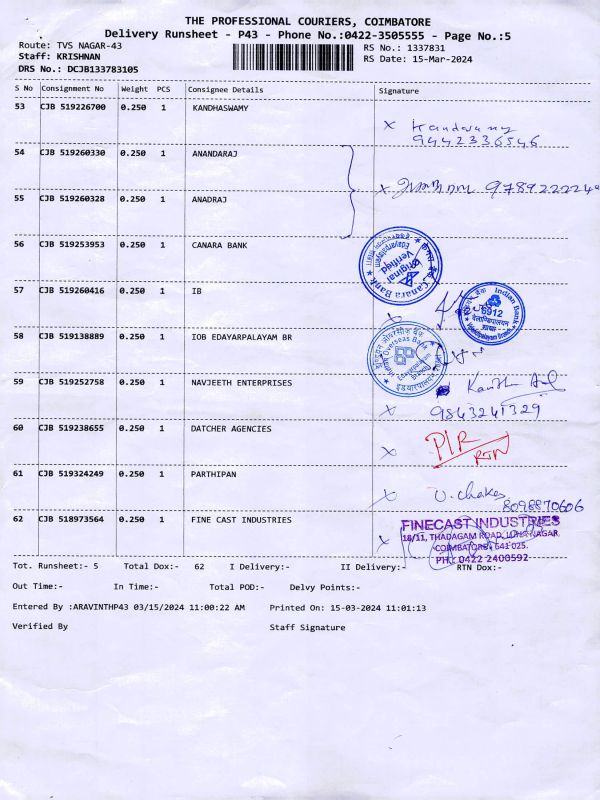 THE PROFESSIONAL COURIERS, COIMBATORE
Delivery Runsheet - P43 - Phone No.:0422-3505555 - Page No.:5
Route: TVS NAGAR-43
RS No.: 1337831
Staff: KRISHNAN
RS Date: 15-Mar-2024
DRS No.: DCJB133783105
S No Consignment No Weight PCS Consignee Details Signature
53 CJB 519226700 0.250 1 KANDHASWAMY
x Kandasamy
9442336546
54 CJB 519260330 0.250 1 ANANDARAJ
x 978922224
55 CJB 519260328 0.250 1 ANADRAJ
56 CJB 519253953 0.250 1 CANARA BANK
Original Verified
Canara Bank
57 CJB 519260416 0.250 1 IB
Indian Bank
6912
58 CJB 519138889 0.250 1 IOB EDAYARPALAYAM BR
Indian Overseas Bank
59 CJB 519252758 0.250 1 NAVJEETH ENTERPRISES
x 9843241329
60 CJB 519238655 0.250 1 DATCHER AGENCIES
x P/R
RTN
61 CJB 519324249 0.250 1 PARTHIPAN
x
8098870606
62 CJB 518973564 0.250 1 FINE CAST INDUSTRIES
x FINECAST INDUSTRIES
18/11, THADAGAM ROAD,
COIMBATORE-641 025.
PH: 0422 2400592
Tot. Runsheet:- 5 Total Dox:- 62 I Delivery:- II Delivery:- RTN Dox:-
Out Time:- In Time:- Total POD:- Delvy Points:-
Entered By :ARAVINTHP43 03/15/2024 11:00:22 AM Printed On: 15-03-2024 11:01:13
Verified By Staff Signature